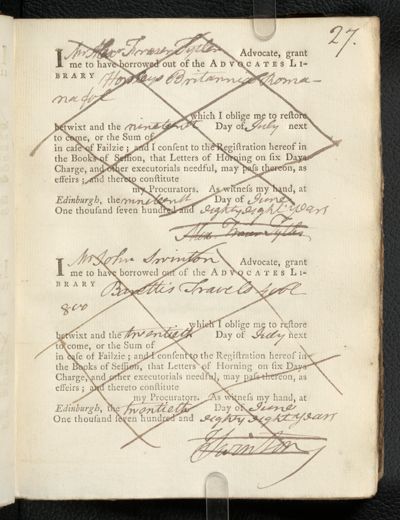 27.
I Mr Alexr Fraser Tytler Advocate, grant
me to have borrowed out of the ADVOCATES LI-
BRARY Horsleys Britannia Roma-
na fol
which I oblige me to restore
betwixt and the nineteenth Day of July next
to come, or the Sum of
in case of Failzie; and I consent to the Registration hereof in
the Books of Session, that Letters of Horning on six Days
Charge, and other executorials needful, may pass thereon, as
effeirs; and thereto constitute
my Procurators. As witness my hand, at
Edinburgh, the nineteenth Day of June
One thousand seven hundred and eighty eight years
Alex. Fraser Tytler
I Mr John Swinton Advocate, grant
me to have borrowed out of the ADVOCATES LI-
BRARY Baretti's Travels 4 vol
8vo
which I oblige me to restore
betwixt and the twentieth Day of July next
to come, or the Sum of
in case of Failzie; and I consent to the Registration hereof in
the Books of Session, that Letters of Horning on six Days
Charge, and other executorials needful, may pass thereon, as
effeirs; and thereto constitute
my Procurators. As witness my hand, at
Edinburgh, the twentieth Day of June
One thousand seven hundred and eighty eight years
J Swinton